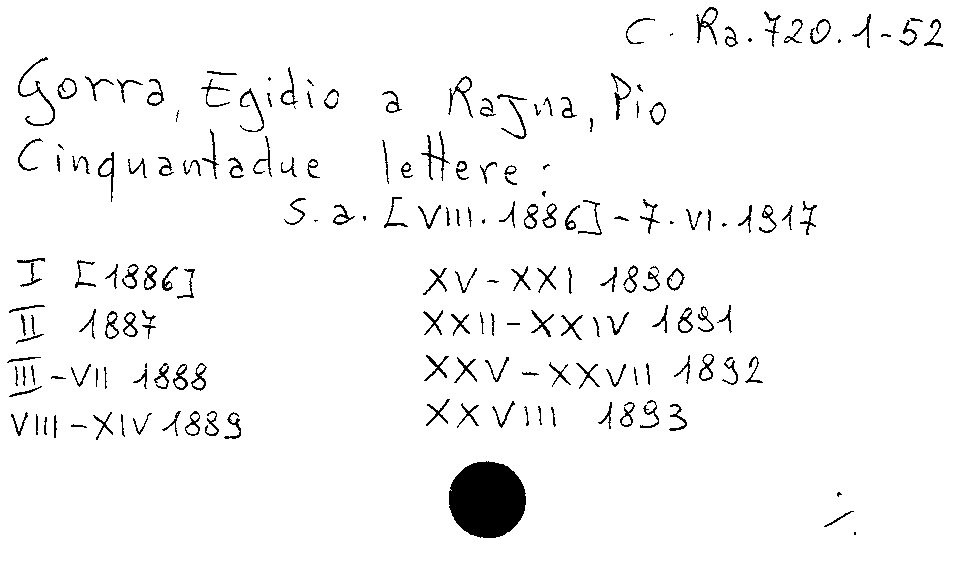 C. Ra. 720. 1-52
Gorra, Egidio a Rajna, Pio
Cinquantadue lettere:
S. a. [VIII. 1886] - 7. VI. 1917
I [1886]
II 1887
III - VII 1888
VIII - XIV 1889
XV - XXI 1890
XXII - XXIV 1891
XXV - XXVII 1892
XXVIII 1893
./.